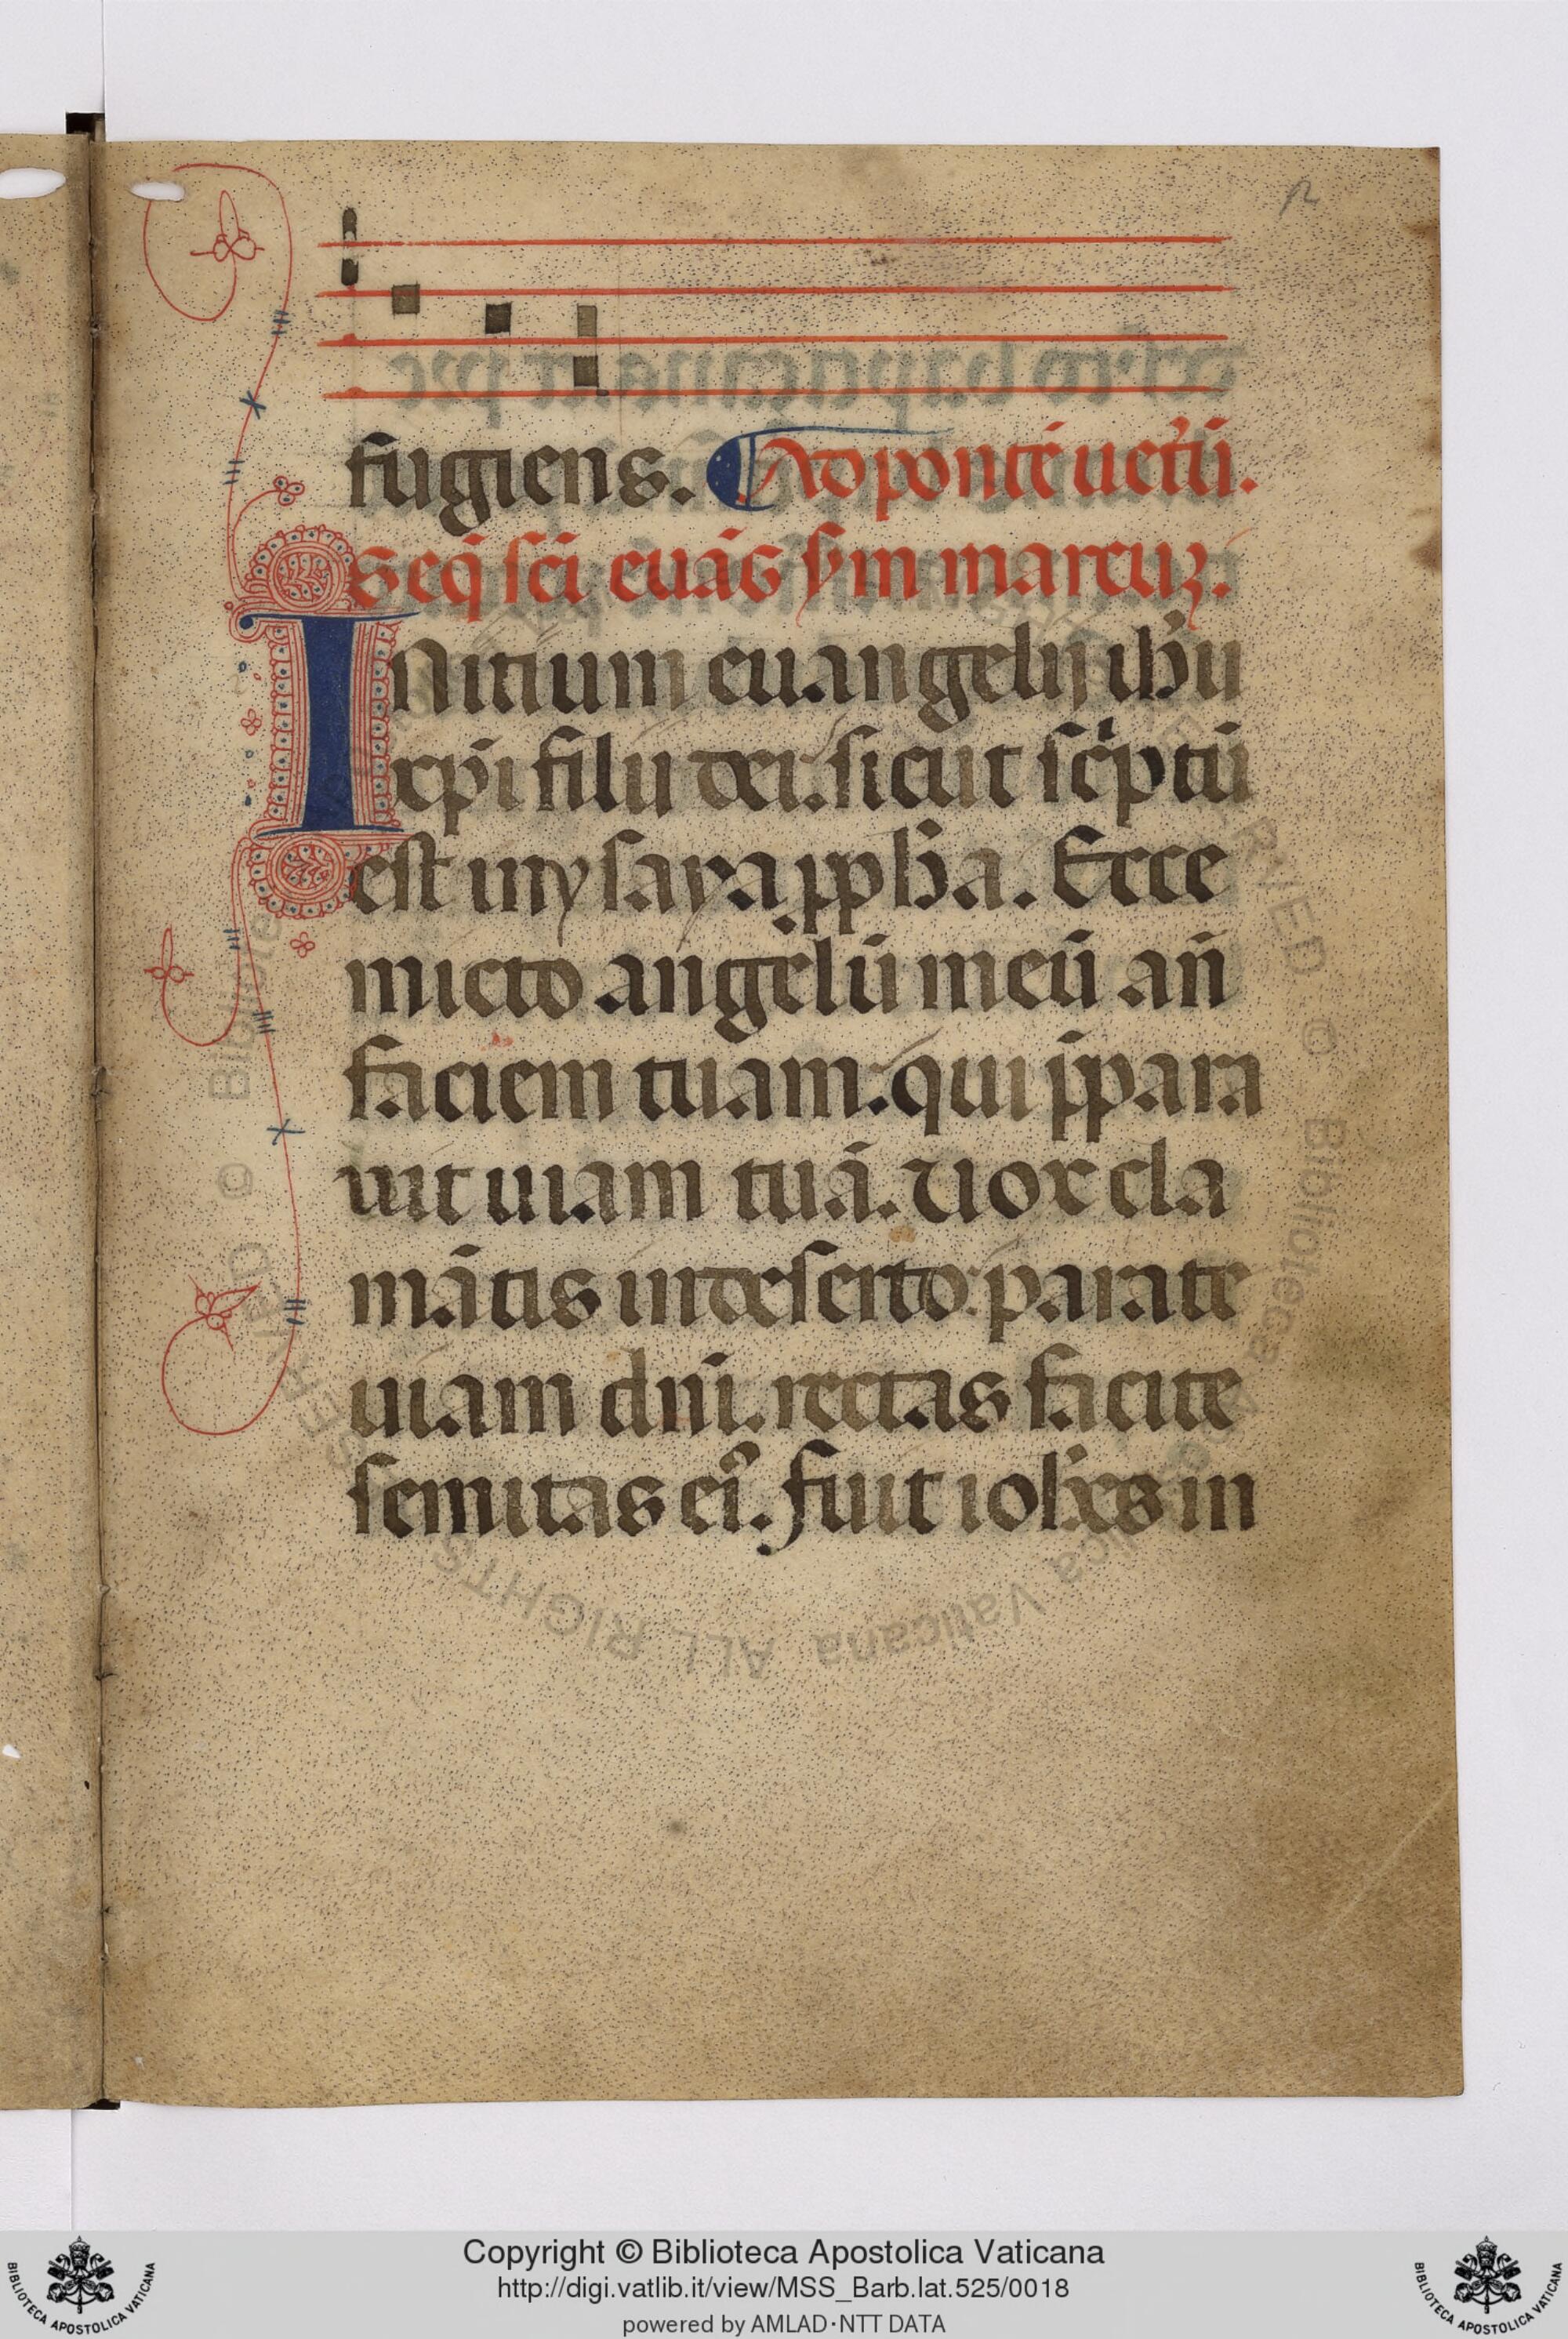 fugiens. Ad pontē uetꝰi.
Seq̄ sc̄i euāg s̄m marcuꝫ.
INitium euangelij ih̄u
xp̄i filii dei. sicut sc̄ptū
est in ysaya ꝓph̄a. Ecce
micto angelū meū an̄
faciem tuam: qui p̄para
uit uiam tuā. Uox cla
mātis in deserto: parate
uiam dn̄i. rectas facite
semitas ei᷒. fuit ioh̄es in
Copyright © Biblioteca Apostolica Vaticana
http://digi.vatlib.it/view/MSS_Barb.lat.525/0018
powered by AMLAD·NTT DATA
BIBLIOTECA APOSTOLICA VATICANA
BIBLIOTECA APOSTOLICA VATICANA